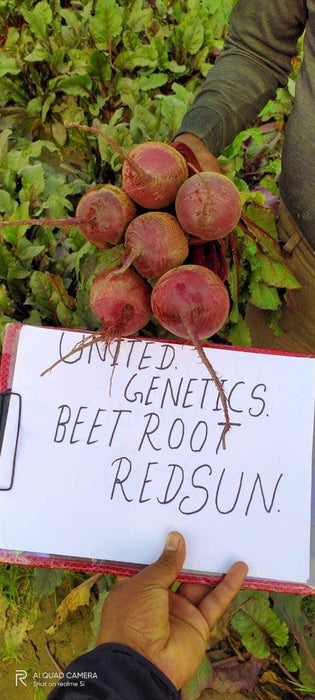 UNITED.
GENETICS.
BEET ROOT
REDSUN.
R
AI QUAD CAMERA
Shot on realme 5i